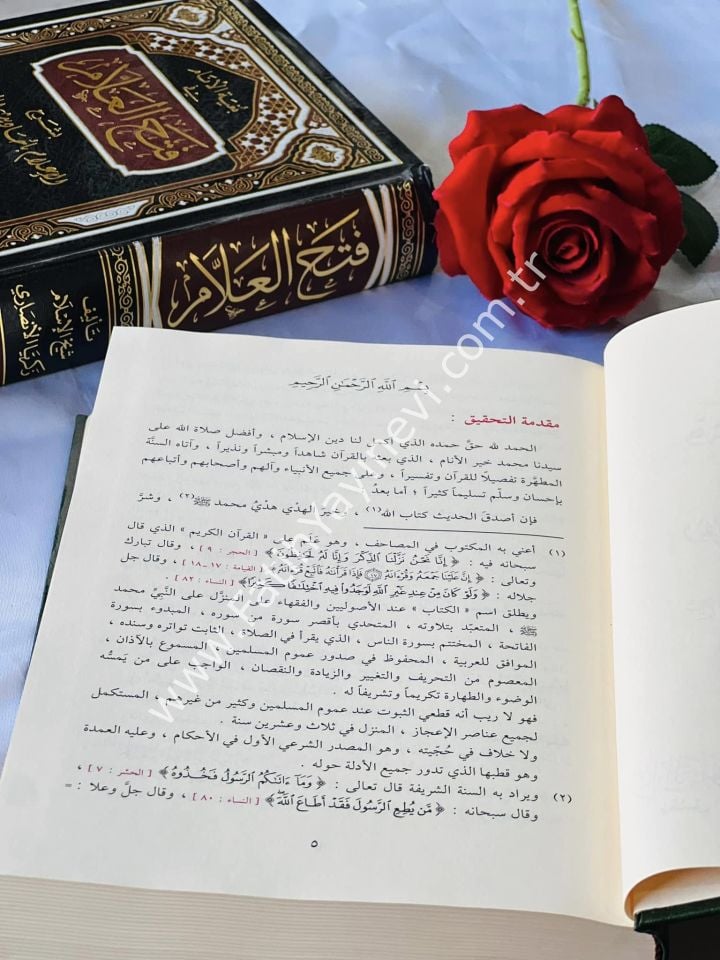 فتح العلام
فتح العلام
تأليف
شيخ الإسلام
زكريا الأنصاري
بِسْمِ اللَّهِ الرَّحْمَٰنِ الرَّحِيمِ
مقدمة التحقيق :
الحمد لله حقَّ حمده الذي أكمل لنا دين الإسلام ، وأفضل صلاة الله على
سيدنا محمد خير الأنام ، الذي بعثه بالقرآن شاهداً ومبشراً ونذيراً ، وآتاه السنَّة
المطهَّرة تفصيلاً للقرآن وتفسيراً ، وعلى جميع الأنبياء وآلهم وأصحابهم وأتباعهم
بإحسان وسلَّم تسليماً كثيراً ؛ أما بعدُ
فإن أصدقَ الحديث كتاب الله(١) ، وخيرَ الهدْي هدْيُ محمد ﷺ(٢) ، وشرَّ
(١) أعني به المكتوب في المصاحف ، وهو عَلَم على « القرآن الكريم » الذي قال
سبحانه فيه : ﴿ إِنَّا نَحْنُ نَزَّلْنَا الذِّكْرَ وَإِنَّا لَهُ لَحَافِظُونَ ﴾ [ الحجر : ٩ ] ، وقال تبارك
وتعالى : ﴿ إِنَّ عَلَيْنَا جَمْعَهُ وَقُرْآنَهُ ﴿١٧﴾ فَإِذَا قَرَأْنَاهُ فَاتَّبِعْ قُرْآنَهُ ﴾ [ القيامة : ١٧-١٨ ] ، وقال جل
جلاله : ﴿ وَلَوْ كَانَ مِنْ عِندِ غَيْرِ اللَّهِ لَوَجَدُوا فِيهِ اخْتِلَافًا كَثِيرًا ﴾ [ النساء : ٨٢ ] .
ويطلق اسم « الكتاب » عند الأصوليين والفقهاء على المنزَّل على النَّبيِّ محمد
ﷺ ، المتعبَّد بتلاوته ، المتحدي بأقصر سورة من سوره ، المبدوء بسورة
الفاتحة ، المختتم بسورة الناس ، الذي يقرأ في الصلاة ، الثابت تواتره وسنده ،
الموافق للعربية ، المحفوظ في صدور عموم المسلمين ، المسموع بالآذان ،
المعصوم من التحريف والتغيير والزيادة والنقصان ، الواجب على من يَمسُّه
الوضوء والطهارة تكريماً وتشريفاً له .
فهو لا ريب أنه قطعي الثبوت عند عموم المسلمين وكثير من غيرهم ، المستكمل
لجميع عناصر الإعجاز ، المنزل في ثلاث وعشرين سنة .
ولا خلاف في حُجِّيته ، وهو المصدر الشرعي الأول في الأحكام ، وعليه العمدة
وهو قطبها الذي تدور جميع الأدلة حوله .
(٢) ويراد به السنة الشريفة قال تعالى : ﴿ وَمَا آتَاكُمُ الرَّسُولُ فَخُذُوهُ ﴾ [ الحشر : ٧ ] ،
وقال سبحانه : ﴿ مَّن يُطِعِ الرَّسُولَ فَقَدْ أَطَاعَ اللَّهَ ﴾ [ النساء : ٨٠ ] ، وقال جلَّ وعلا : =
٥
www.FatihYayinevi.com.tr